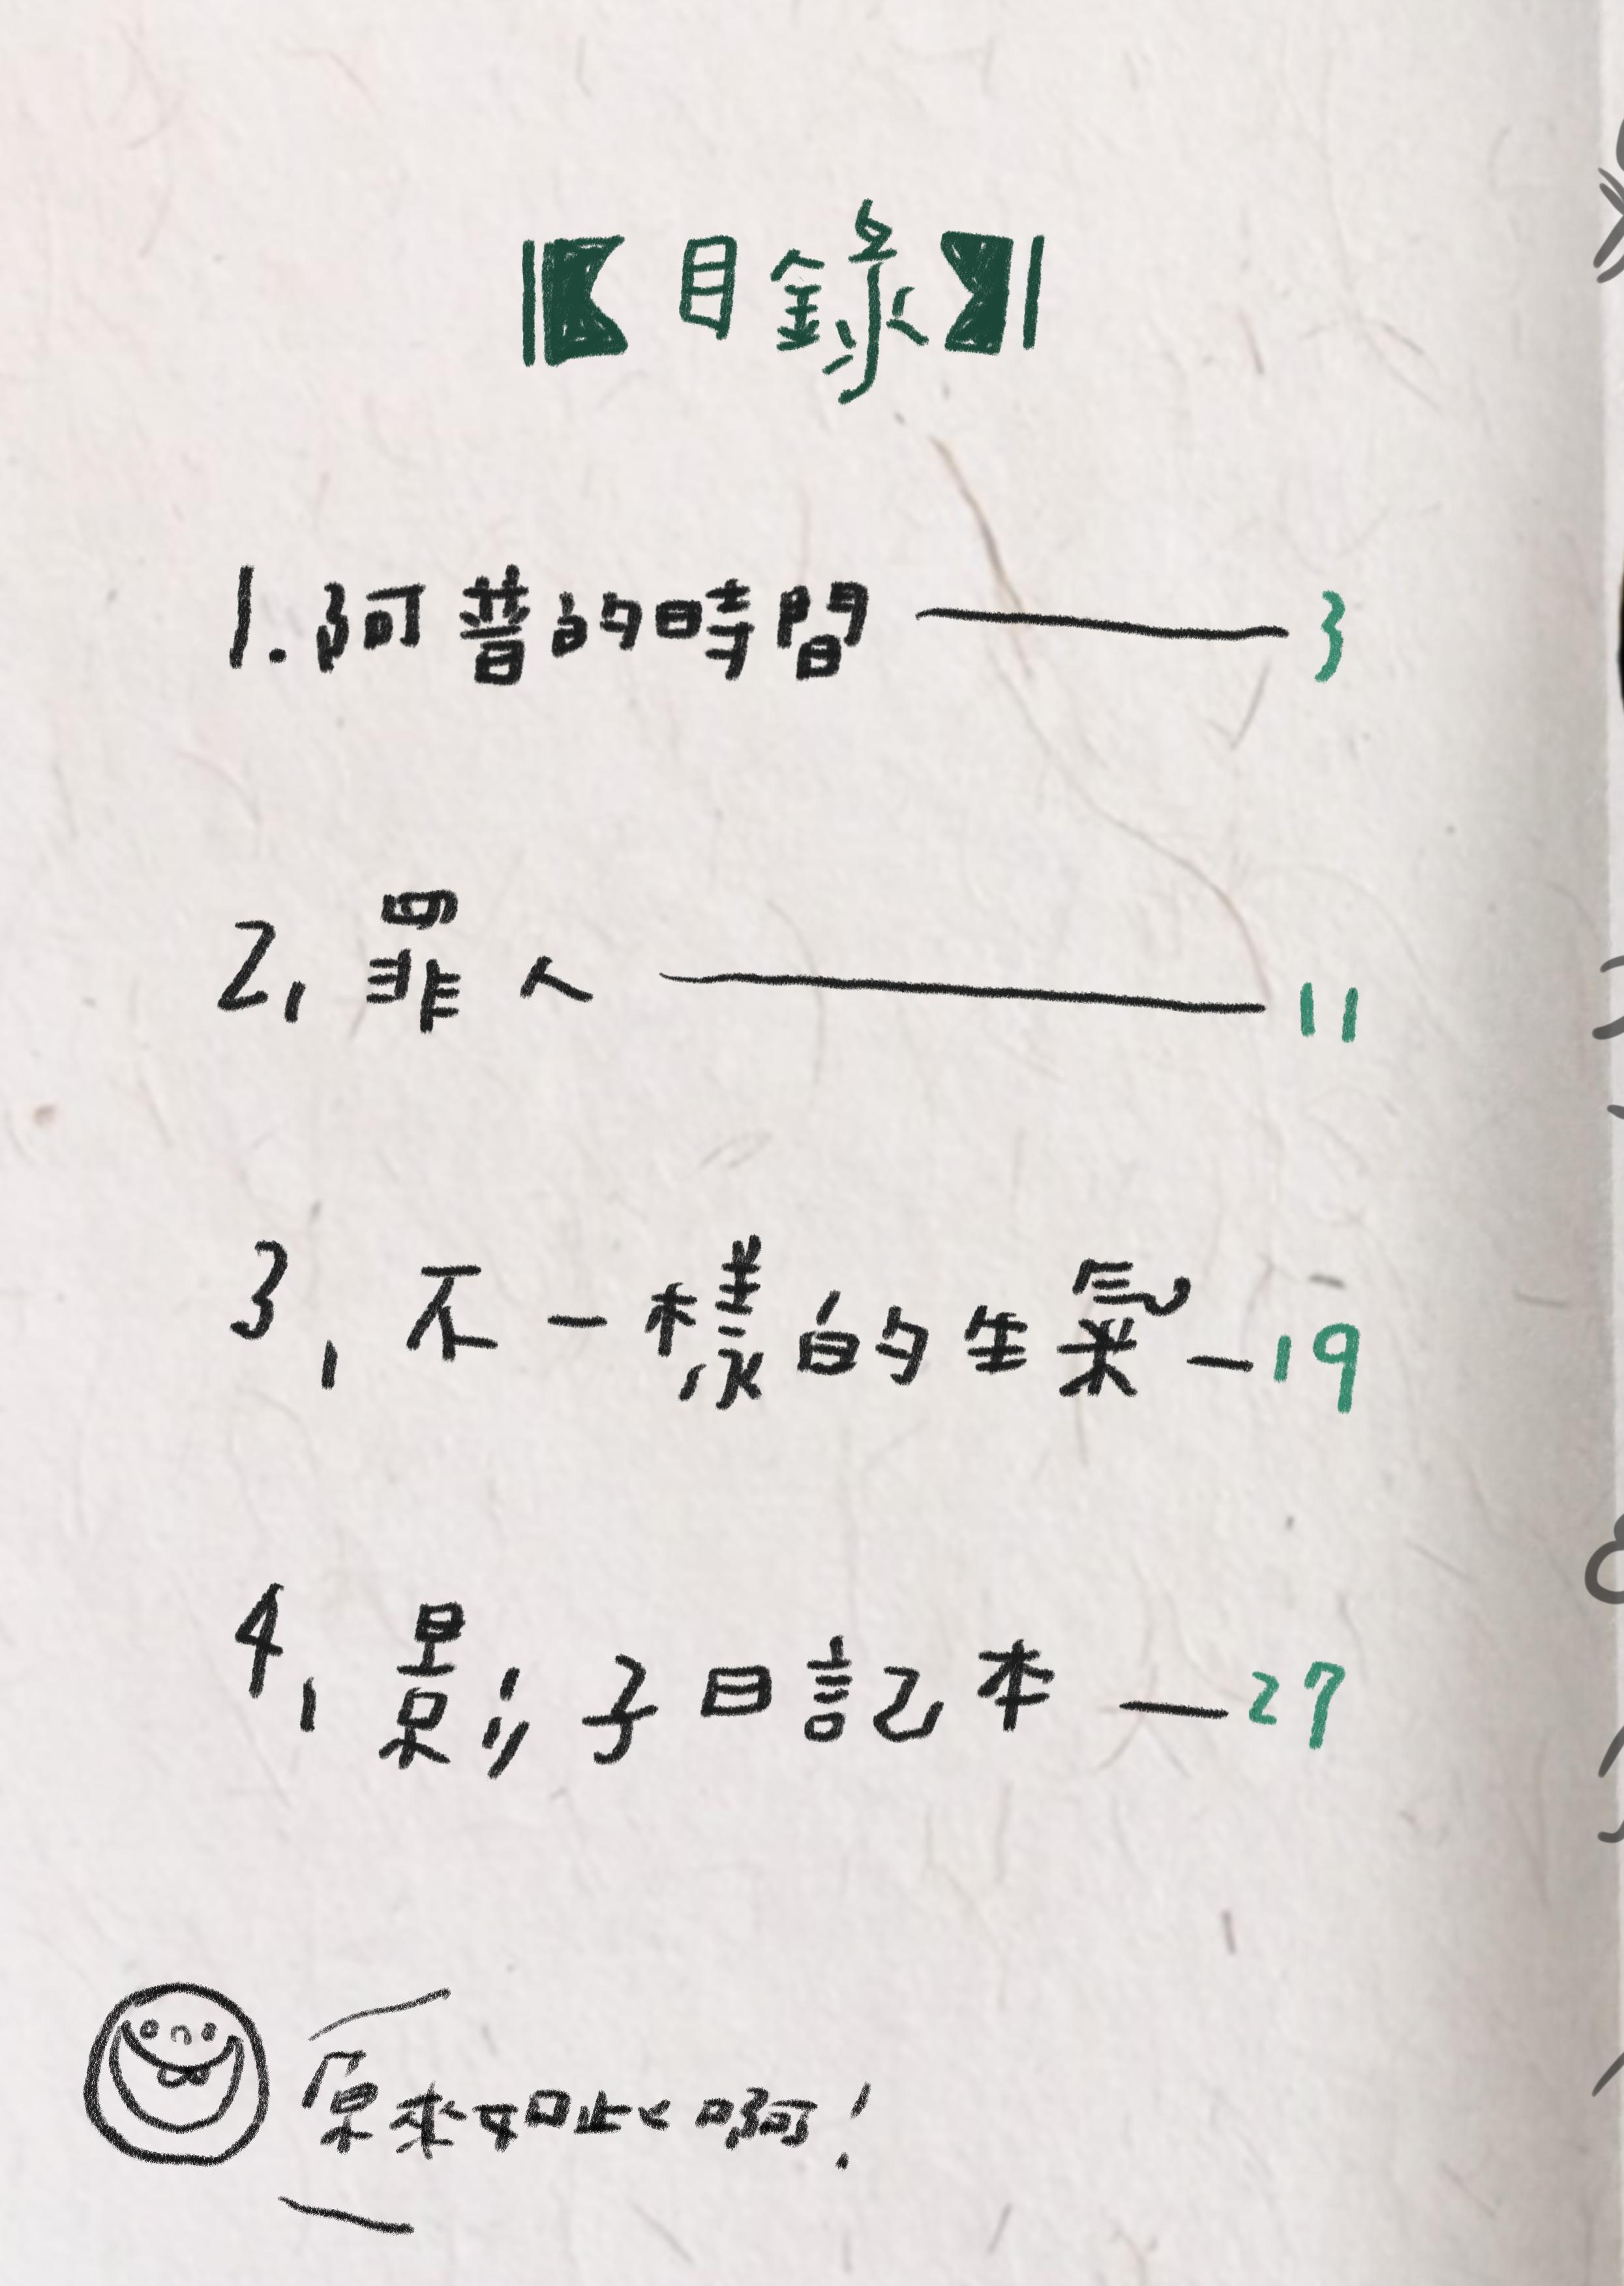 【目錄】
1.阿普的時間——3
2、罪人——11
3、不一樣的生氣—19
4、影子日記本—27
原來如此啊!